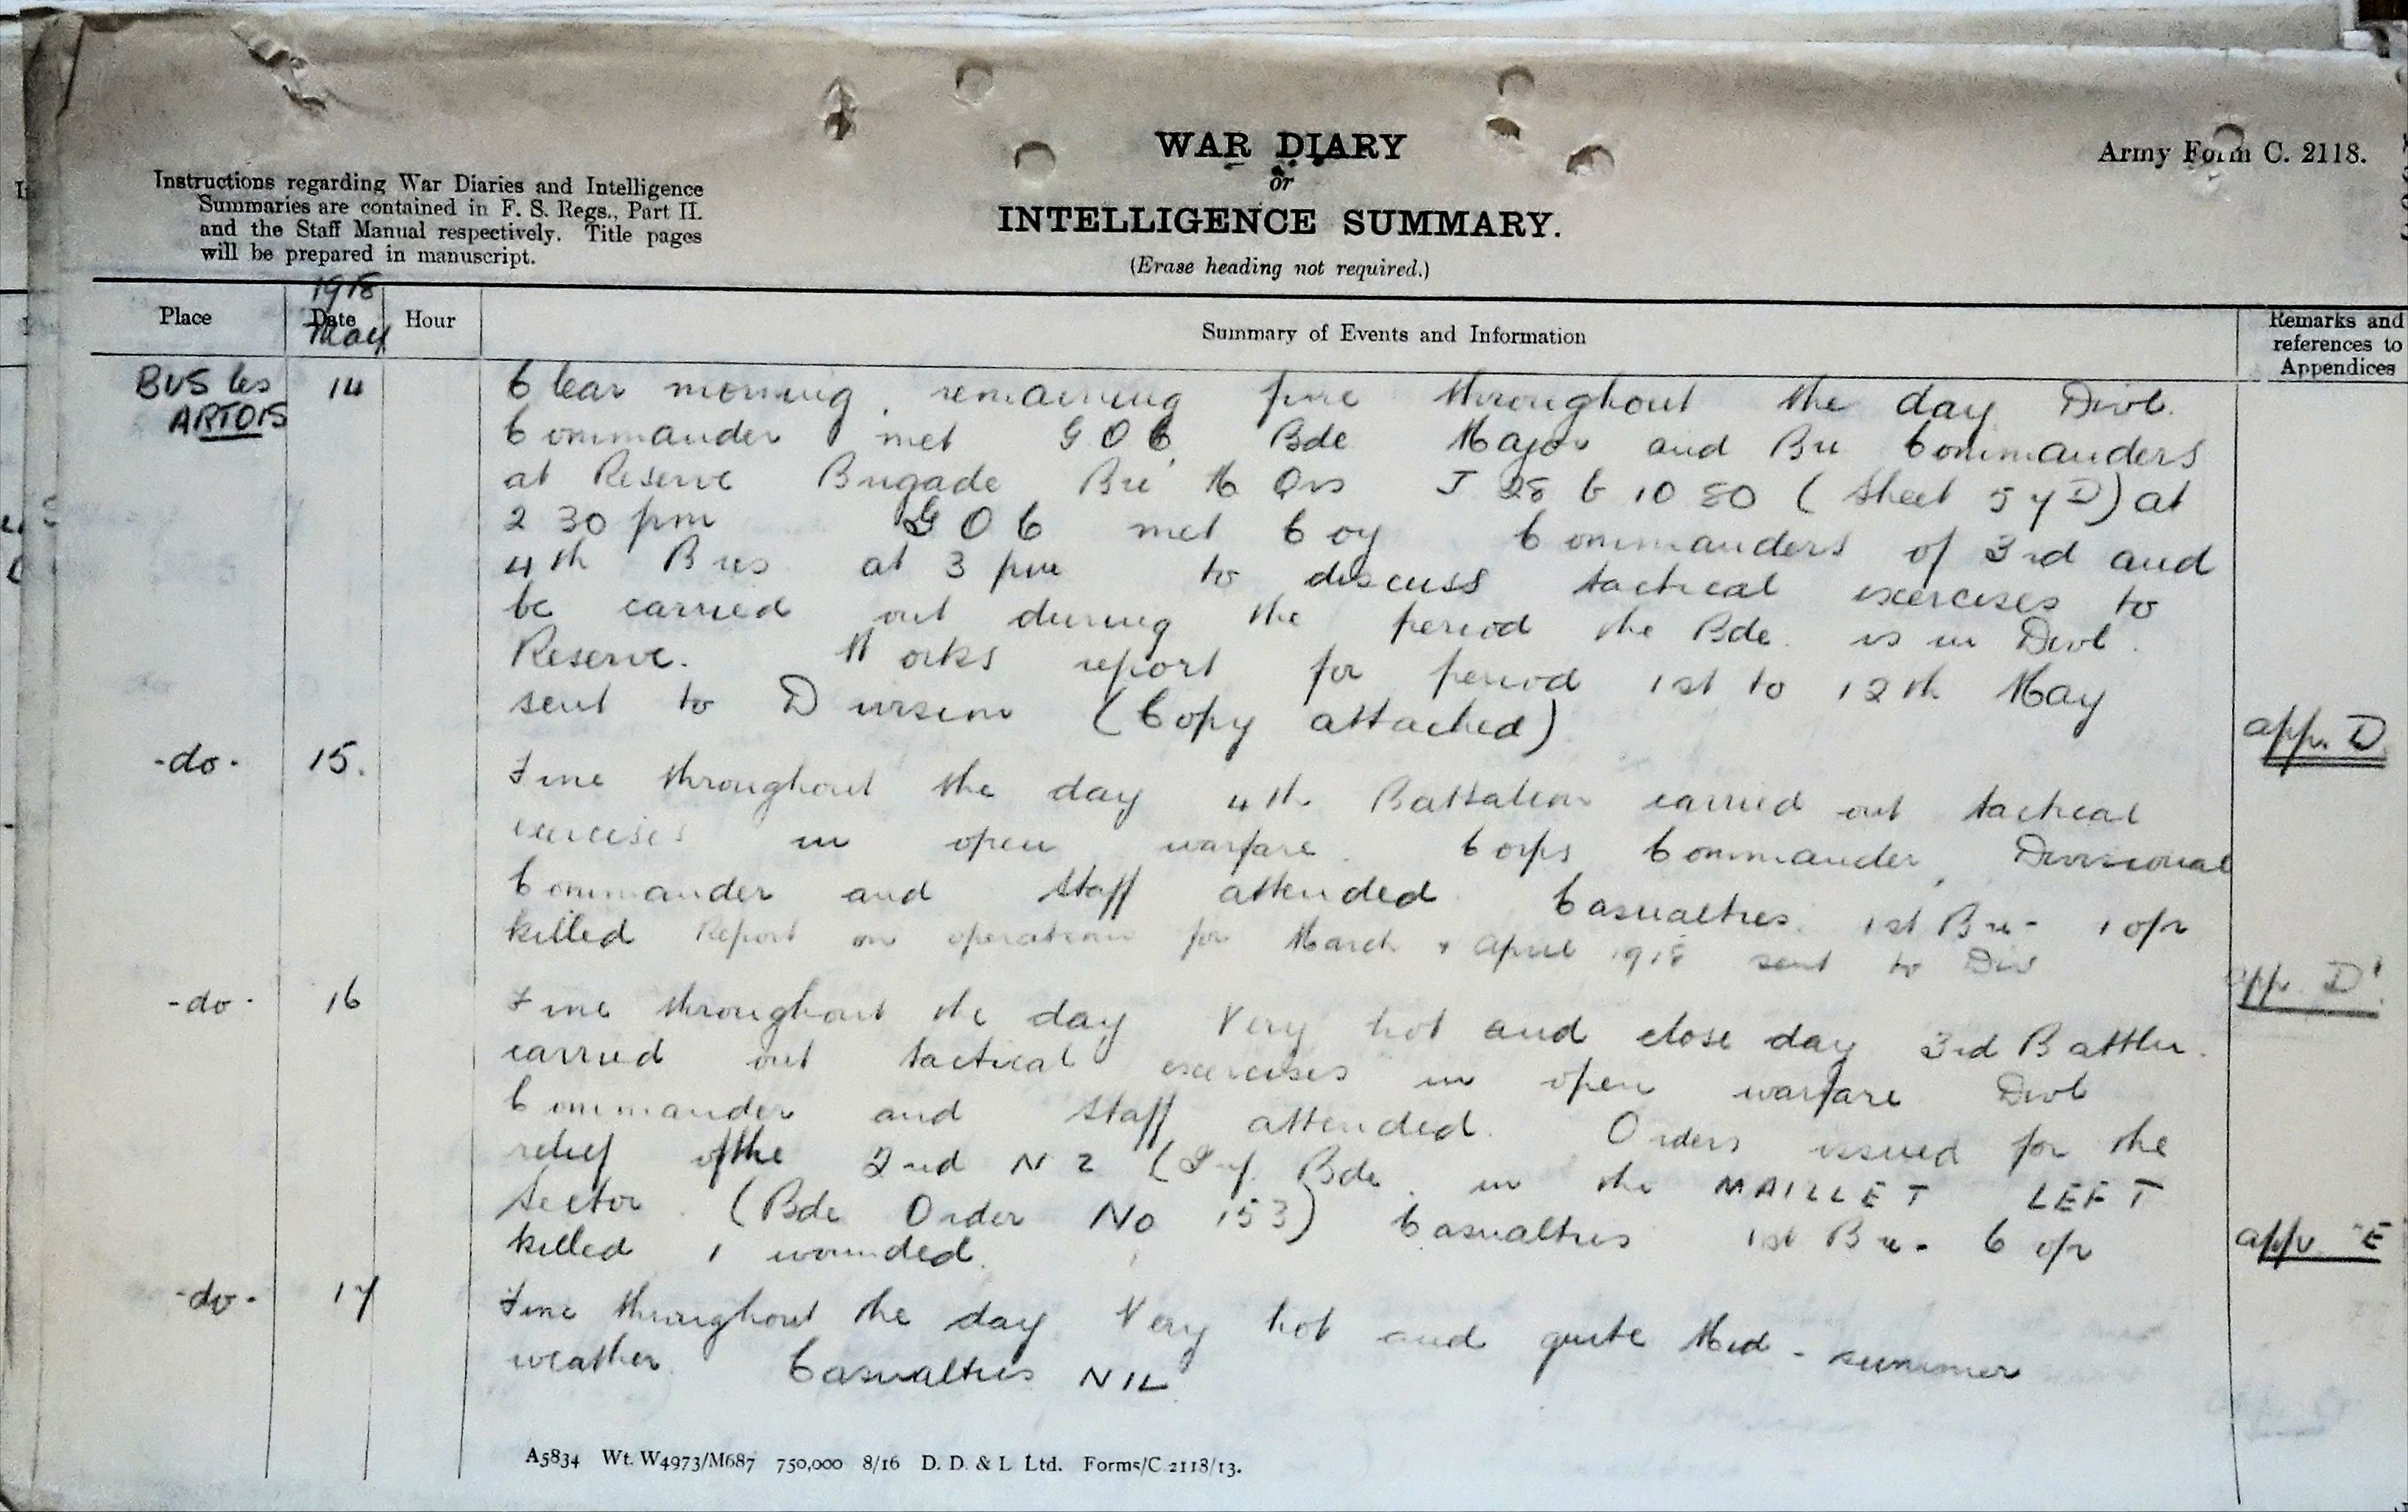 WAR DIARY
or
INTELLIGENCE SUMMARY.
(Erase heading not required.)
Army Form C. 2118.
Instructions regarding War Diaries and Intelligence
Summaries are contained in F. S. Regs., Part II.
and the Staff Manual respectively. Title pages
will be prepared in manuscript.
Place
1918
Date
May
Hour
Summary of Events and Information
Remarks and
references to
Appendices
BUS les
ARTOIS
14
Clear morning, remaining fine throughout the day Divl.
Commander met GOC, Bde Major and Bn Commanders
at Reserve Brigade Bn H Qrs J 28 b 10 80 (Sheet 57D) at
2 30 pm GOC met Coy Commanders of 3rd and
4th Bns at 3 pm to discuss tactical exercises to
be carried out during the period the Bde. is in Divl.
Reserve. Works report for period 1st to 12th May
sent to Division (Copy attached)
app. D
-do-
15.
Fine throughout the day 4th Battalion carried out tactical
exercises in open warfare. Corps Commander, Divisional
Commander and Staff attended. Casualties. 1st Bn - 1 o/r
killed Report on operations for March & April 1918 sent to Div
app. D'
-do-
16
Fine throughout the day Very hot and close day 3rd Battln.
carried out tactical exercises in open warfare Divl
Commander and Staff attended. Orders issued for the
relief of the 2nd N Z (Inf. Bde. in the MAILLET LEFT
Sector. (Bde Order No 153) Casualties 1st Bn - 6 o/r
killed 1 wounded.
app E
-do-
17
Fine throughout the day. Very hot and quite Mid-summer
weather. Casualties NIL
A5834 Wt. W4973/M687 750,000 8/16 D. D. & L. Ltd. Forms/C.2118/13.